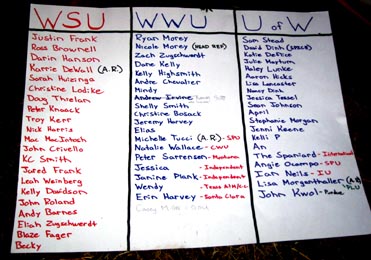 WSU
Justin Frank
Ross Brownell
Darin Hanson
Karrie DeWall (A.R.)
Sarah Huizenga
Christine Lodike
Doug Thielan
Peter Knaack
Troy Kerr
Nick Harris
Mac MacIntosh
John Crivello
KC Smith
Jared Frank
Leah Weinberg
Kelly Davidson
John Roland
Andy Barnes
Elijah Zugschwerdt
Blaze Fager
Becky
WWU
Ryan Morey
Nicole Morey (HEAD REF)
Zach Zugschwerdt
Dave Kelly
Kelly Highsmith
Andre Chevalier
Mindy
Andrew Irvine
Shelly Smith
Christine Bosack
Jeremy Harvey
Elias
Michelle Tucci (A.R.) - SPU
Natalie Wallace - CWU
Peter Sorrensen - Montana
Jessica - Independent
Janine Plank - Independent
Wendy - Texas A/M/C.C.
Erin Harvey - Santa Clara
U of W
Sam Stead
David Dinh (SPECB)
Katie DeFice
Julie Mayhum
Haley Funke
Aaron Hicks
Lisa Lancaster
Nancy Dinh
Jessica Tessel
Sean Johnson
April
Stephanie Morgan
Jenni Keene
Kelli P.
An
The Spaniard - International
Angie Ocampo - SPU
Ian Neils - IU
Lisa Morgenthaller (A.R.) - PLU
John Kwol - Purdue